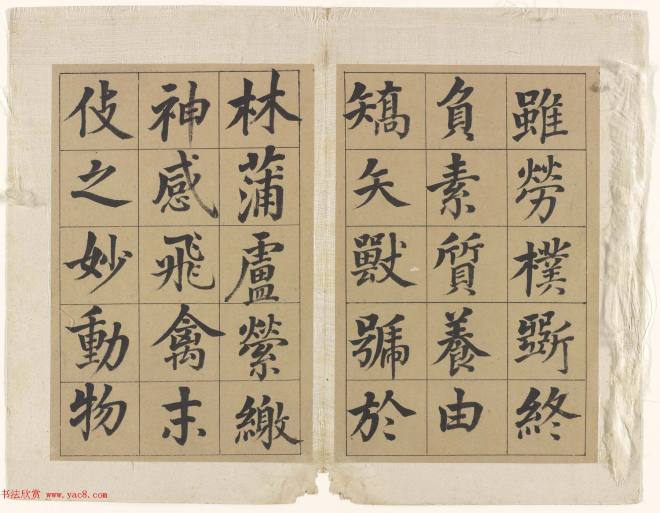 雖勞樸斵終
負素質養由
矯矢獸號於
林蒲盧縈繳
神感飛禽末
伎之妙動物
书法欣赏 www.yac8.com